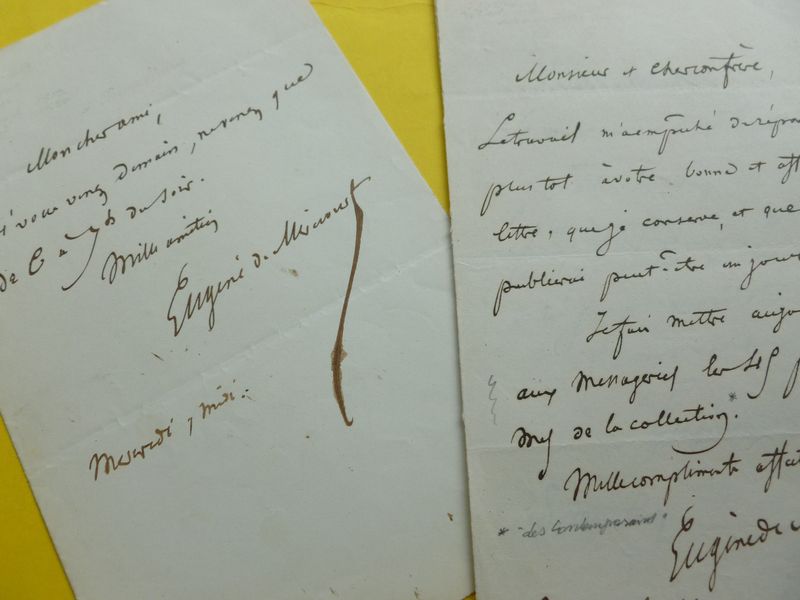 Mon cher ami,
si vous venez demain, ne venez que
de 6 à 7 h du soir.
Mille amitiés
Eugène de Mirecourt
Mercredi, midi.
Monsieur et cher confrère,
Le travail m'a empêché de répon
plus tôt à votre bonne et aff
lettre, que je conserve, et que
publierai peut-être un jour
Je fais mettre aujo
aux Messageries les
de la collection.*
Mille compliments affec
* des Contemporains.
Eugène de